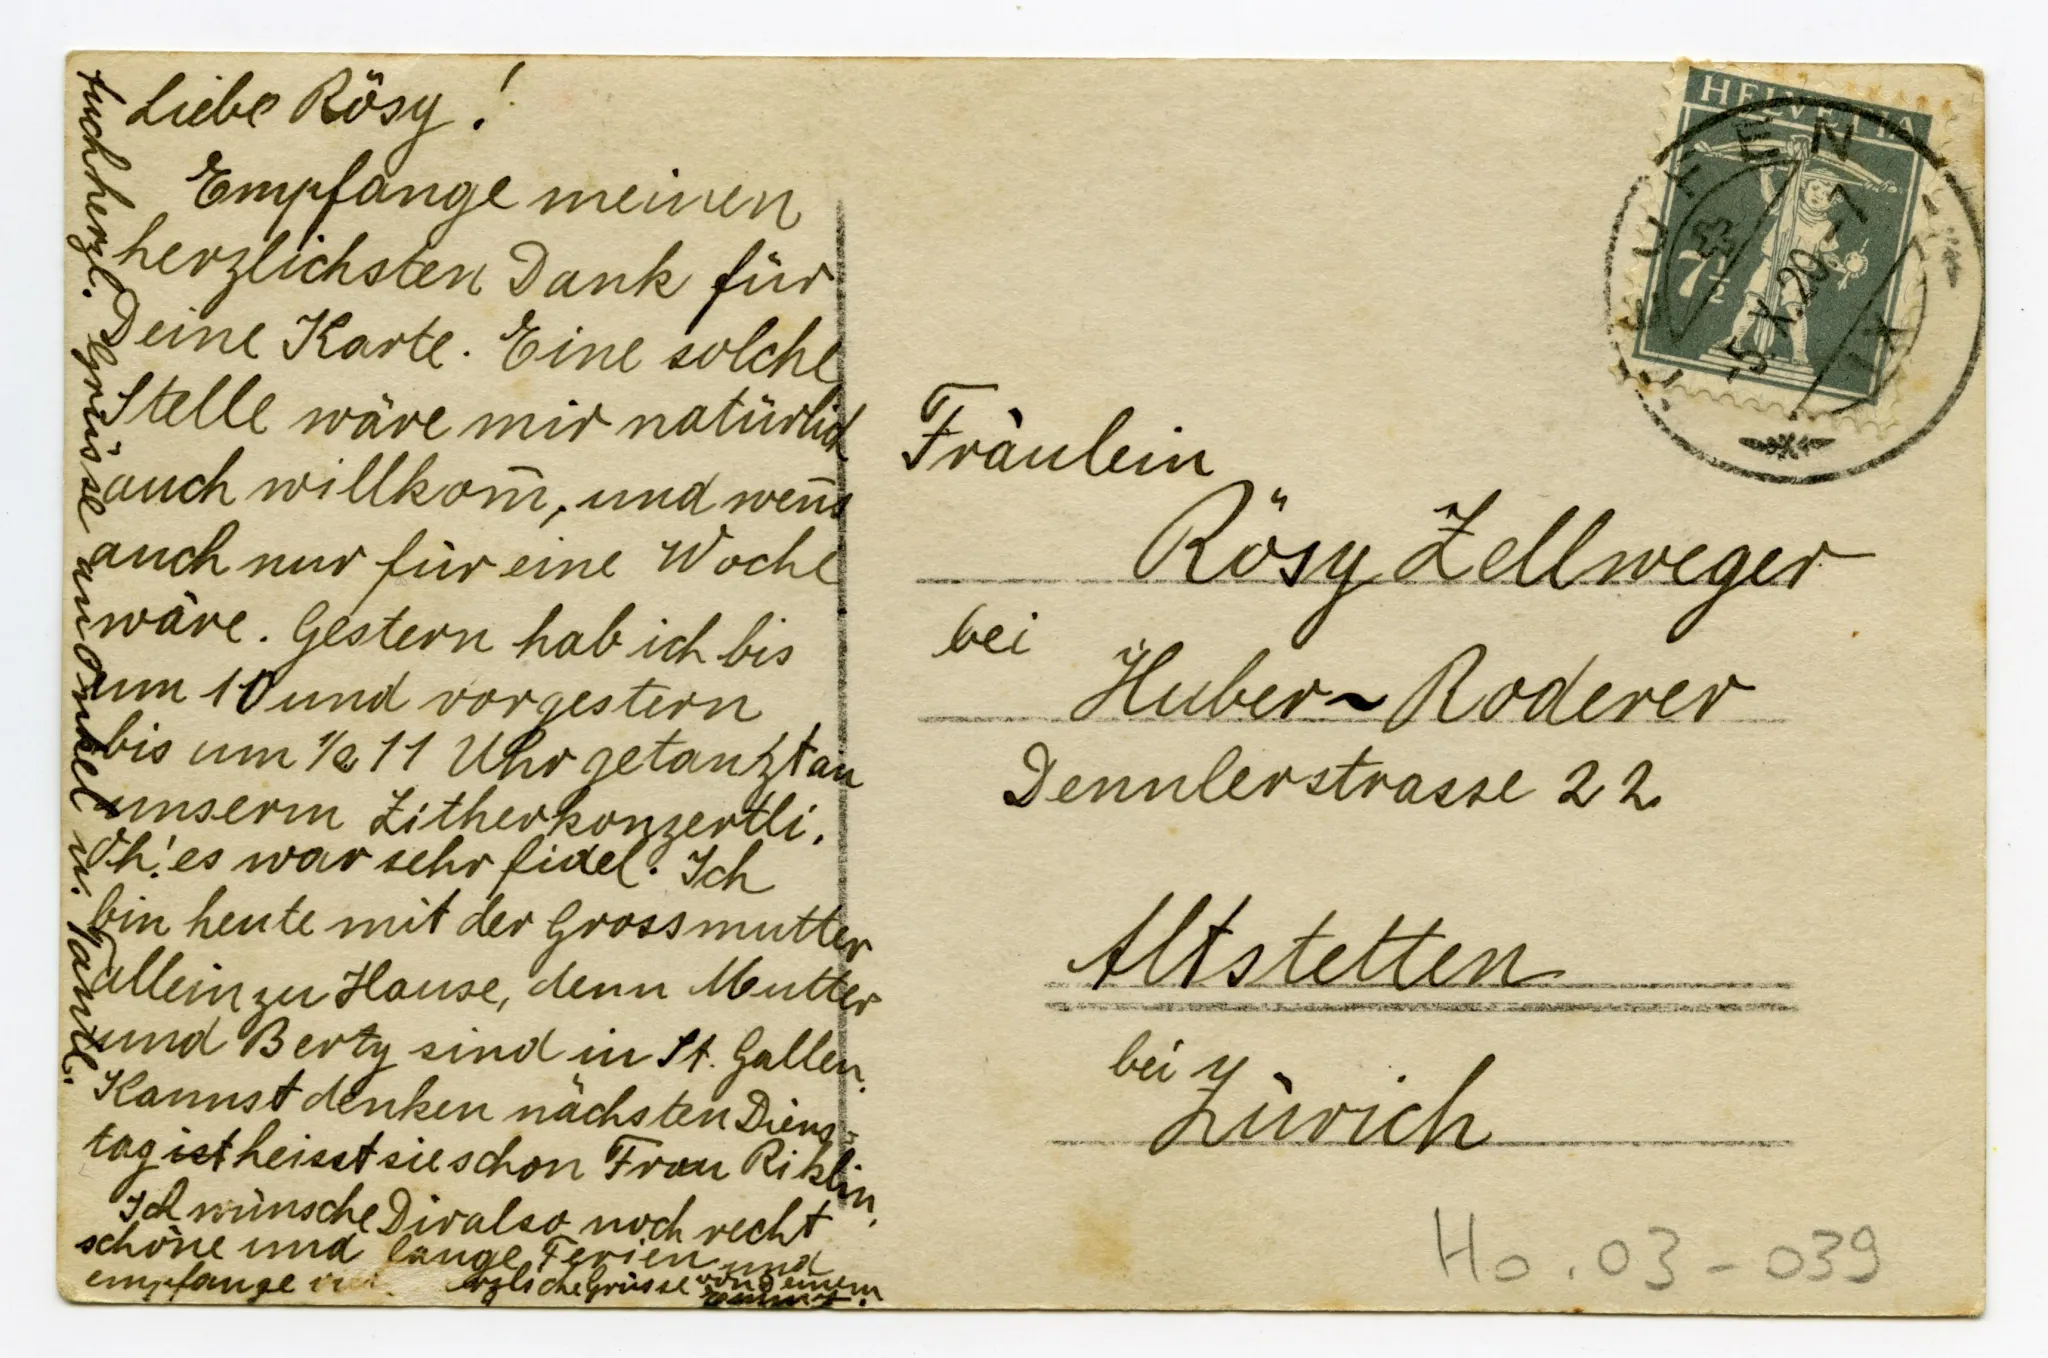 Liebe Rösy!
Empfange meinen
herzlichsten Dank für
Deine Karte. Eine solche
Stelle wäre mir natürlich
auch willkom̅, und wen̅s
auch nur für eine Woche
wäre. Gestern hab ich bis
um 10 und vorgestern
bis um ½ 11 Uhr getanzt an
unserm Zitherkonzertli.
Oh! es war sehr fidel. Ich
bin heute mit der Grossmutter
allein zu Hause, denn Mutter
und Berty sind in St. Gallen.
Kannst denken nächsten Diens-
tag ist heisst sie schon Frau Riklin.
Ich wünsche Dir also noch recht
schöne und lange Ferien und
empfange herzliche Grüsse von Deinem
Auch herzl. Grüsse an Onkel u. Tante.
HELVETIA
7½
TEUFEN
-5.X.20.-7
IX
Fräulein
Rösy Zellweger
bei
Huber-Roderer
Dennlerstrasse 22
Altstetten
bei
Zürich
Ho. 03-039